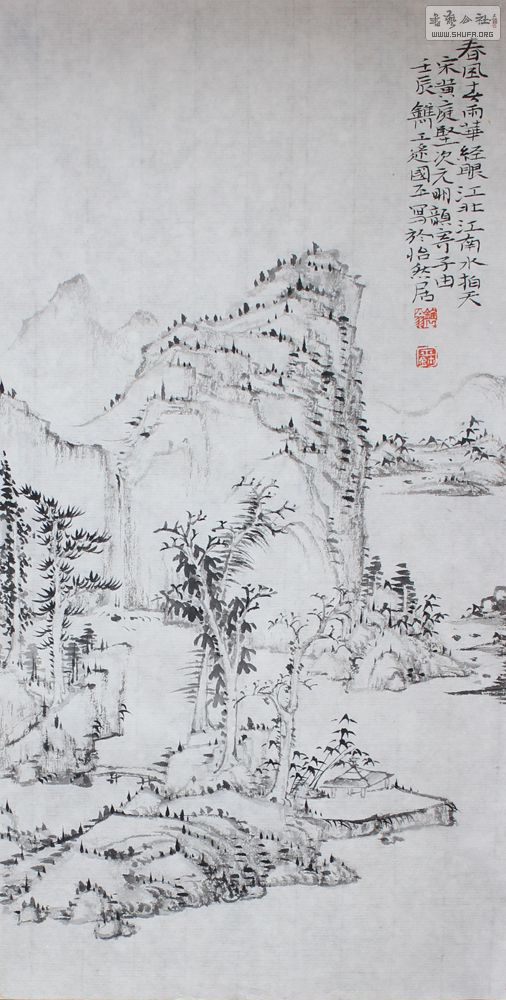 書藝公社
WWW.SHUFA.ORG
春風春雨華經眼江北江南水拍天
宋黃庭堅次元明韻寄子由
壬辰
國
寫於怡然居